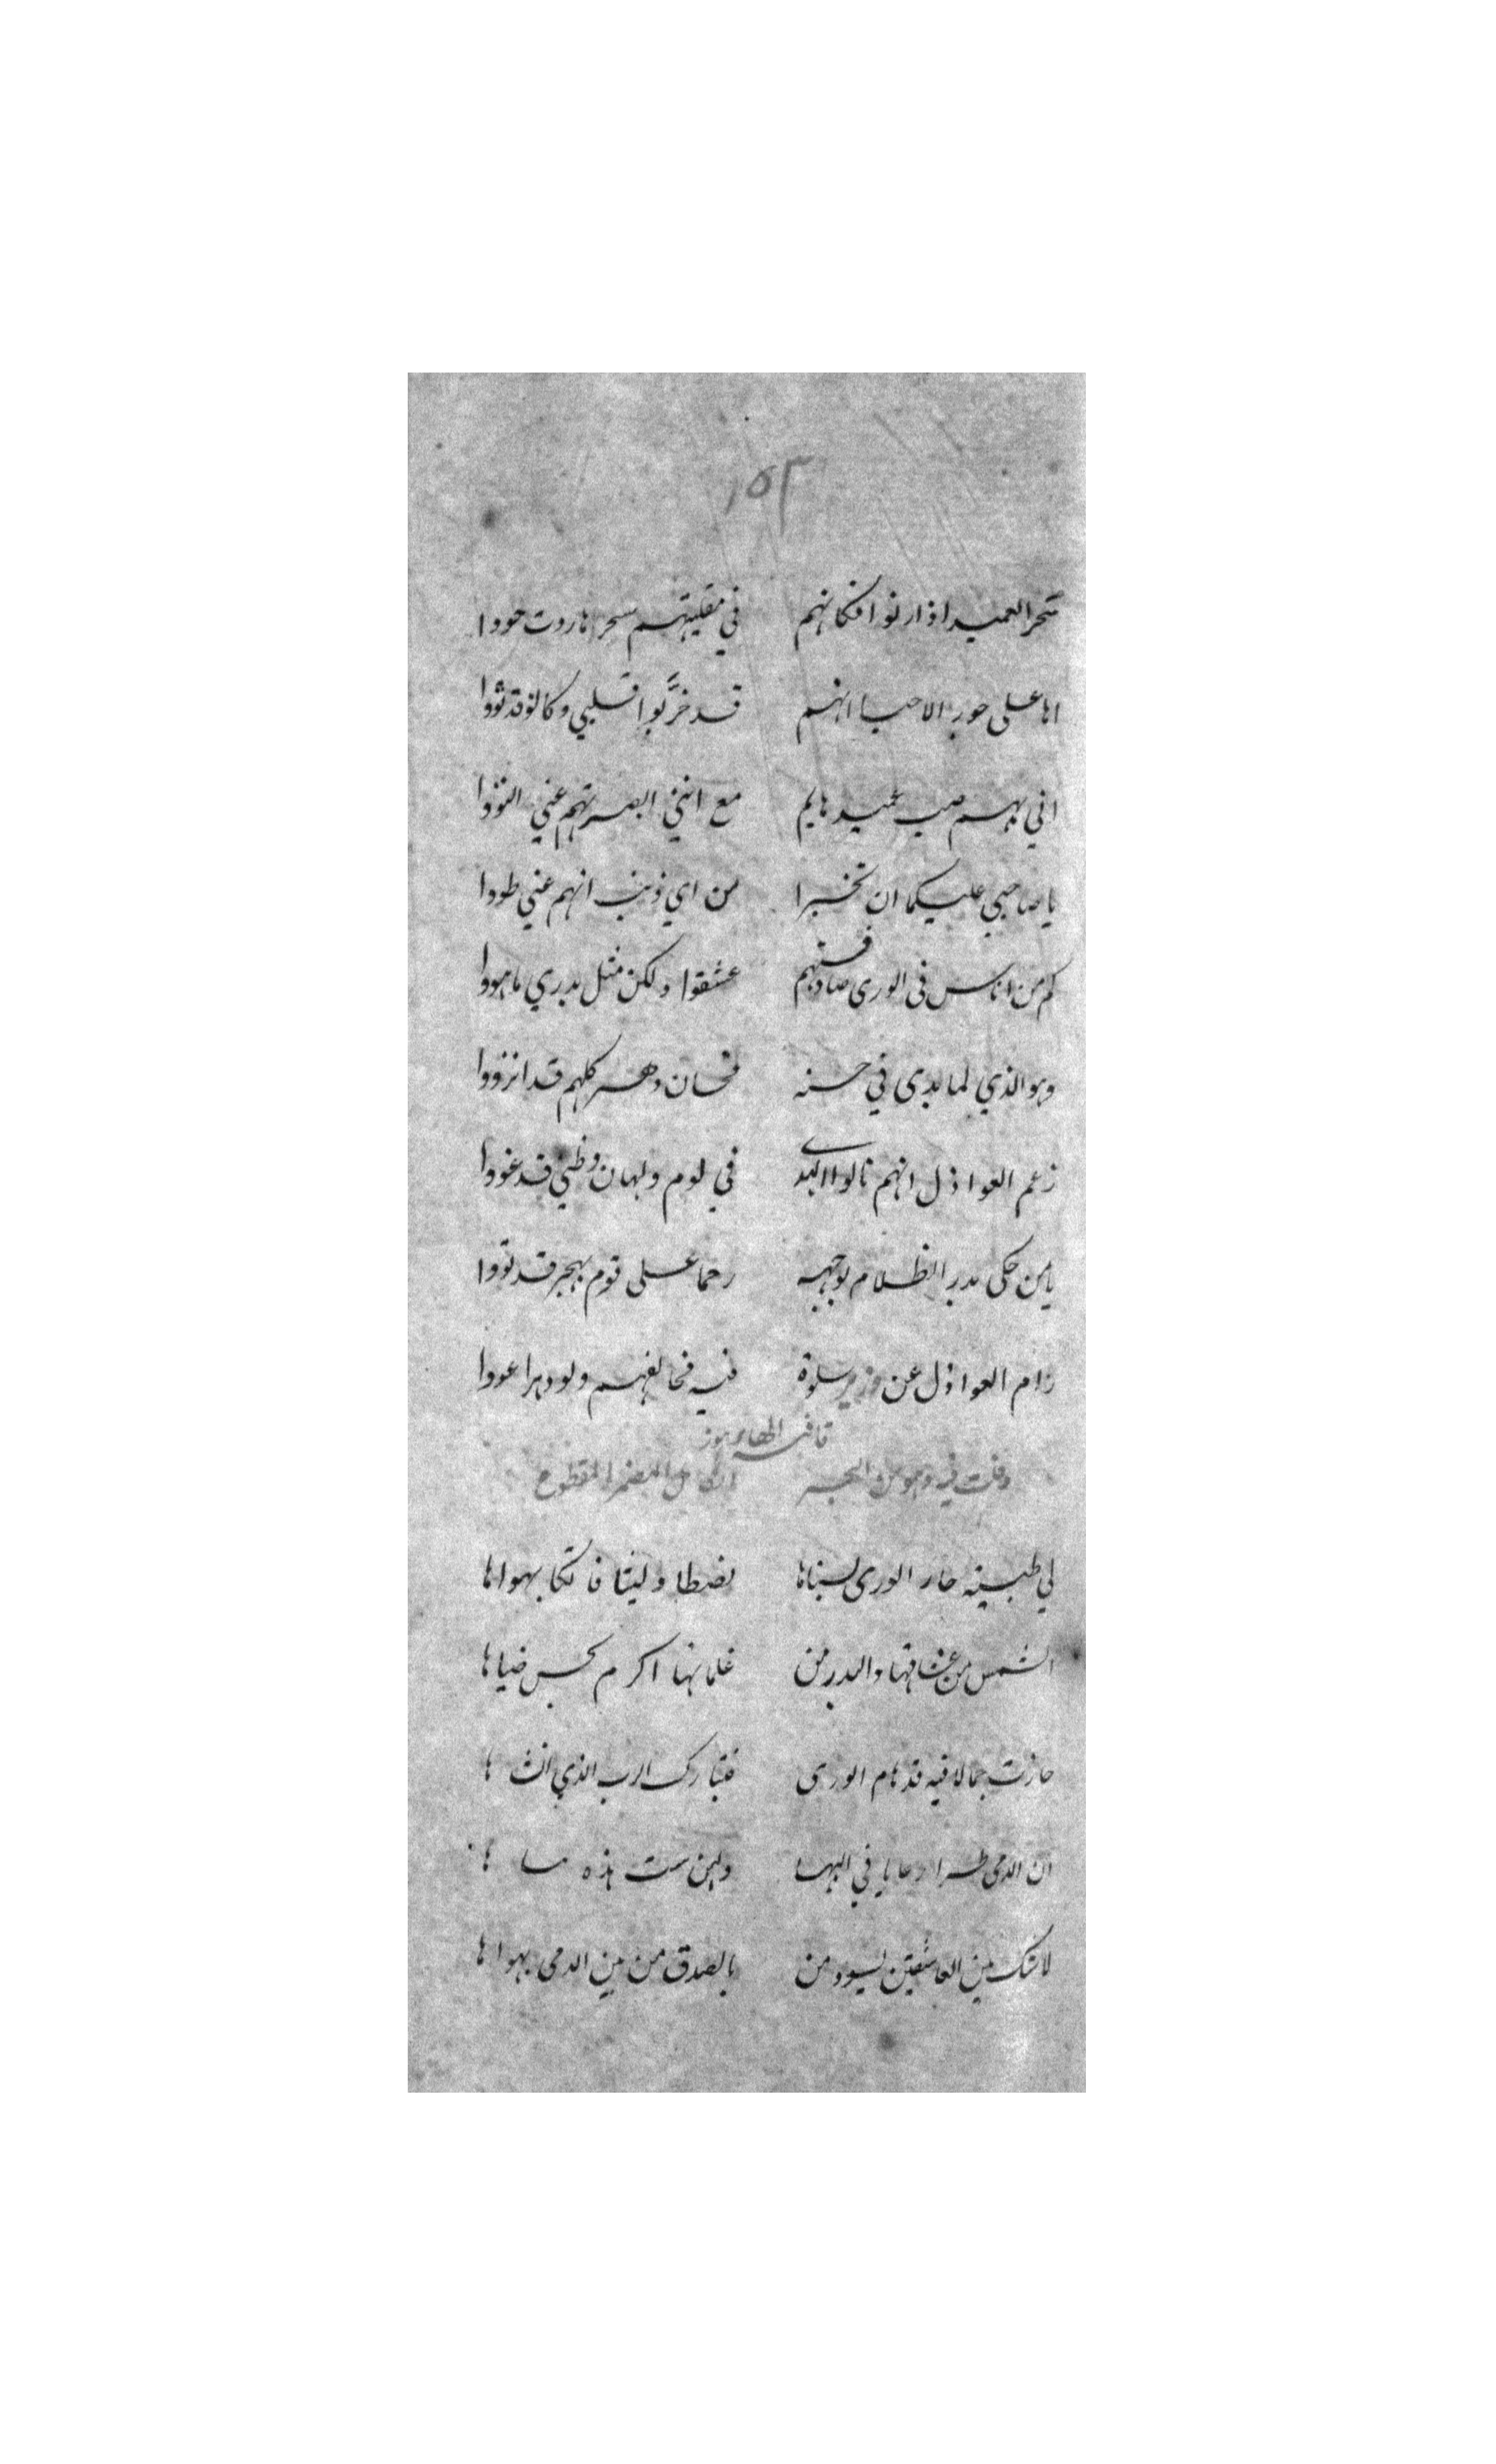 ١٥٣
سحر العميد اذا رنوا فكانهم في مقليتهم سحر هاروت حووا
اها على جور الاحبا انهم قد خربوا قلبي وكانو قد ثووا
اني بهم صب عميد هايم مع انني ابصرتهم عني التووا
يا صاحبي عليكما ان تخبرا من اي ذنب انهم عني طووا
كم من اناس في الورى صادفتهم عشقوا ولكن مثل بدري ما هووا
وهو الذي لما بدى في حسنه فحسان دهر كلهم قد انزووا
زعم العواذل انهم نالوا الهدى في لوم ولهان وظني قد غووا
يا من حكى بدر الظلام بوجهه رحما على قوم بهجر قد تووا
رام العواذل عن سلوة فيه فخالفهم ولو دهرا عووا
قافية الهاء هوز
وقلت فيه وهو من البحر الكامل المضمر المقطوع
لي ظبية حار الورى بسناها
الشمس من عشاقها والبدر من غلمانها اكرم بحسن ضياها
حازت جمالا فيه قد هام الورى فتبارك الرب الذي انشاها
ان الدمى طرا رعايا في البها هذه
لا شك بين العاشقين يسود من بالصدق من بين الدمى يهواها